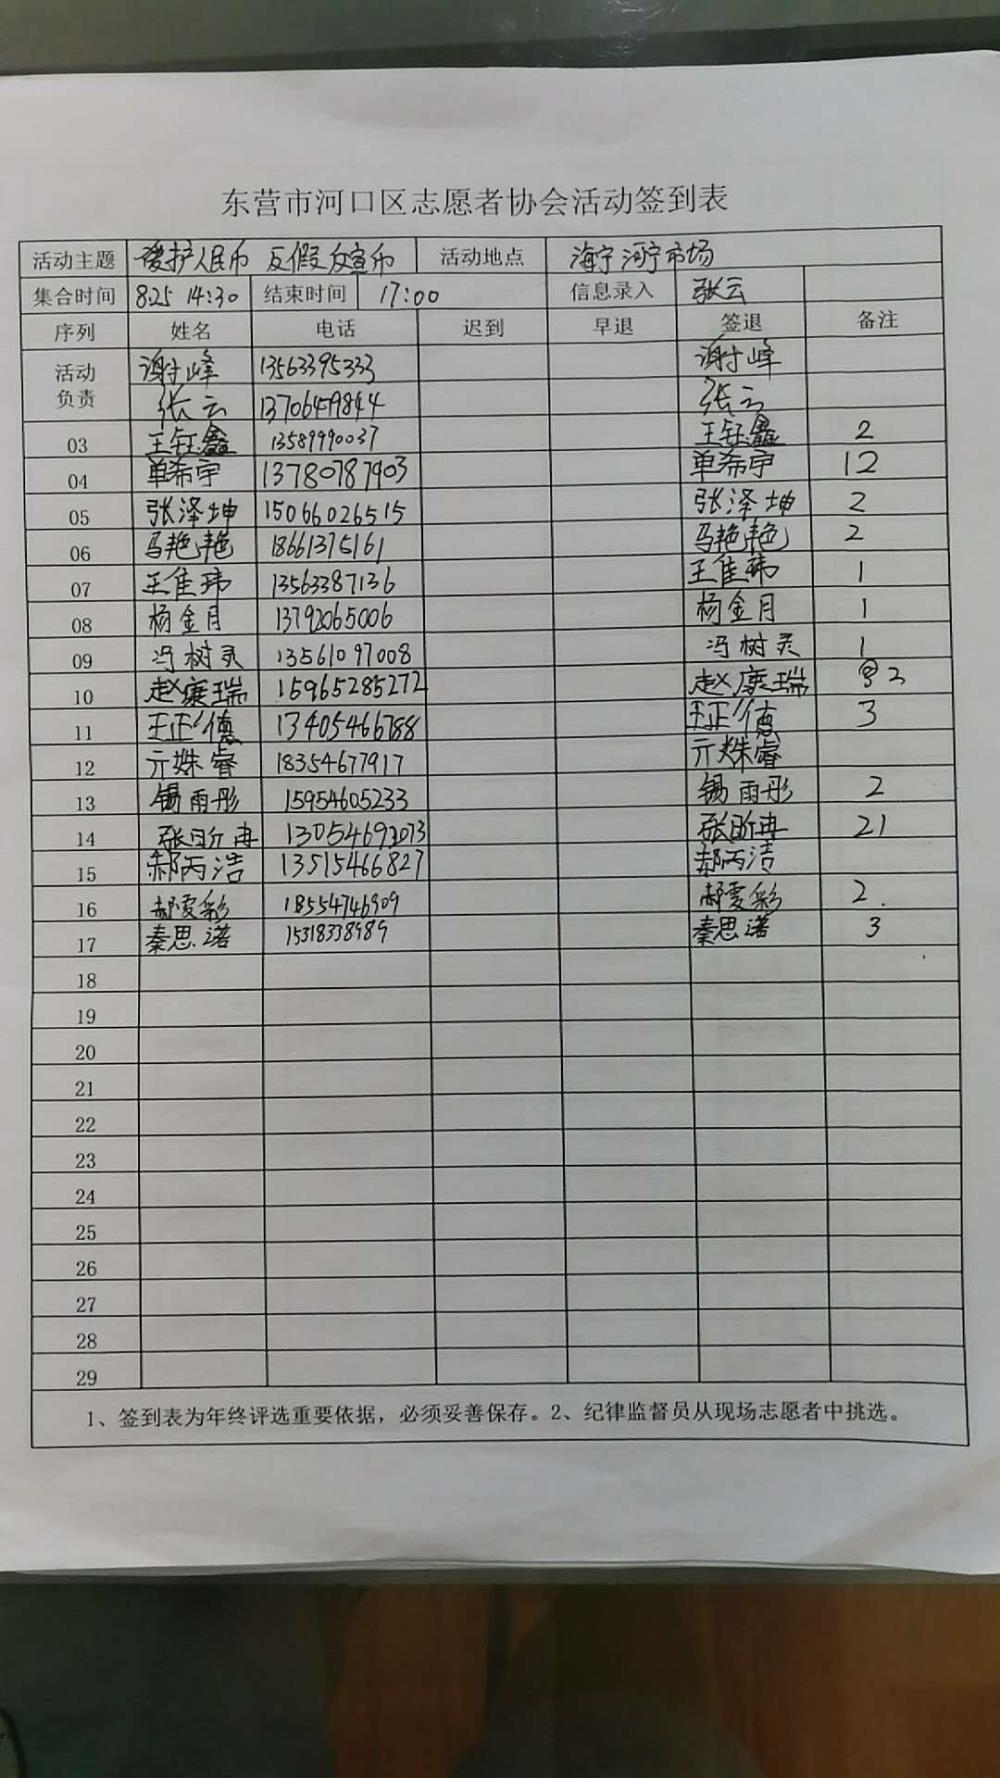 东营市河口区志愿者协会活动签到表
活动主题 爱护人民币 反假 宣币 活动地点 海宁河宁市场
集合时间 8.25 14:30 结束时间 17:00 信息录入 张云
序列 姓名 电话 迟到 早退 签退 备注
活动负责 谢峰 13563395333 谢峰
张云 13706459844 张云
03 王钰鑫 13589990037 王钰鑫 2
04 单希宇 13780787903 单希宇 12
05 张泽坤 15066026515 张泽坤 2
06 马艳艳 18661375161 马艳艳 2
07 王佳玮 13563387136 王佳玮 1
08 杨金月 13792065006 杨金月 1
09 冯树灵 13561097008 冯树灵 1
10 赵康瑞 15965285272 赵康瑞 2
11 王正德 13405466788 王正德 3
12 亓姝睿 18354677917 亓姝睿
13 锡雨彤 15954605233 锡雨彤 2
14 张昕冉 张昕冉 21
15 郝丙浩 13515466827 郝丙浩
16 郝雯彩 18554746909 郝雯彩 2.
17 秦思诺 15318338989 秦思诺 3
18
19
20
21
22
23
24
25
26
27
28
29
1、签到表为年终评选重要依据，必须妥善保存。2、纪律监督员从现场志愿者中挑选。